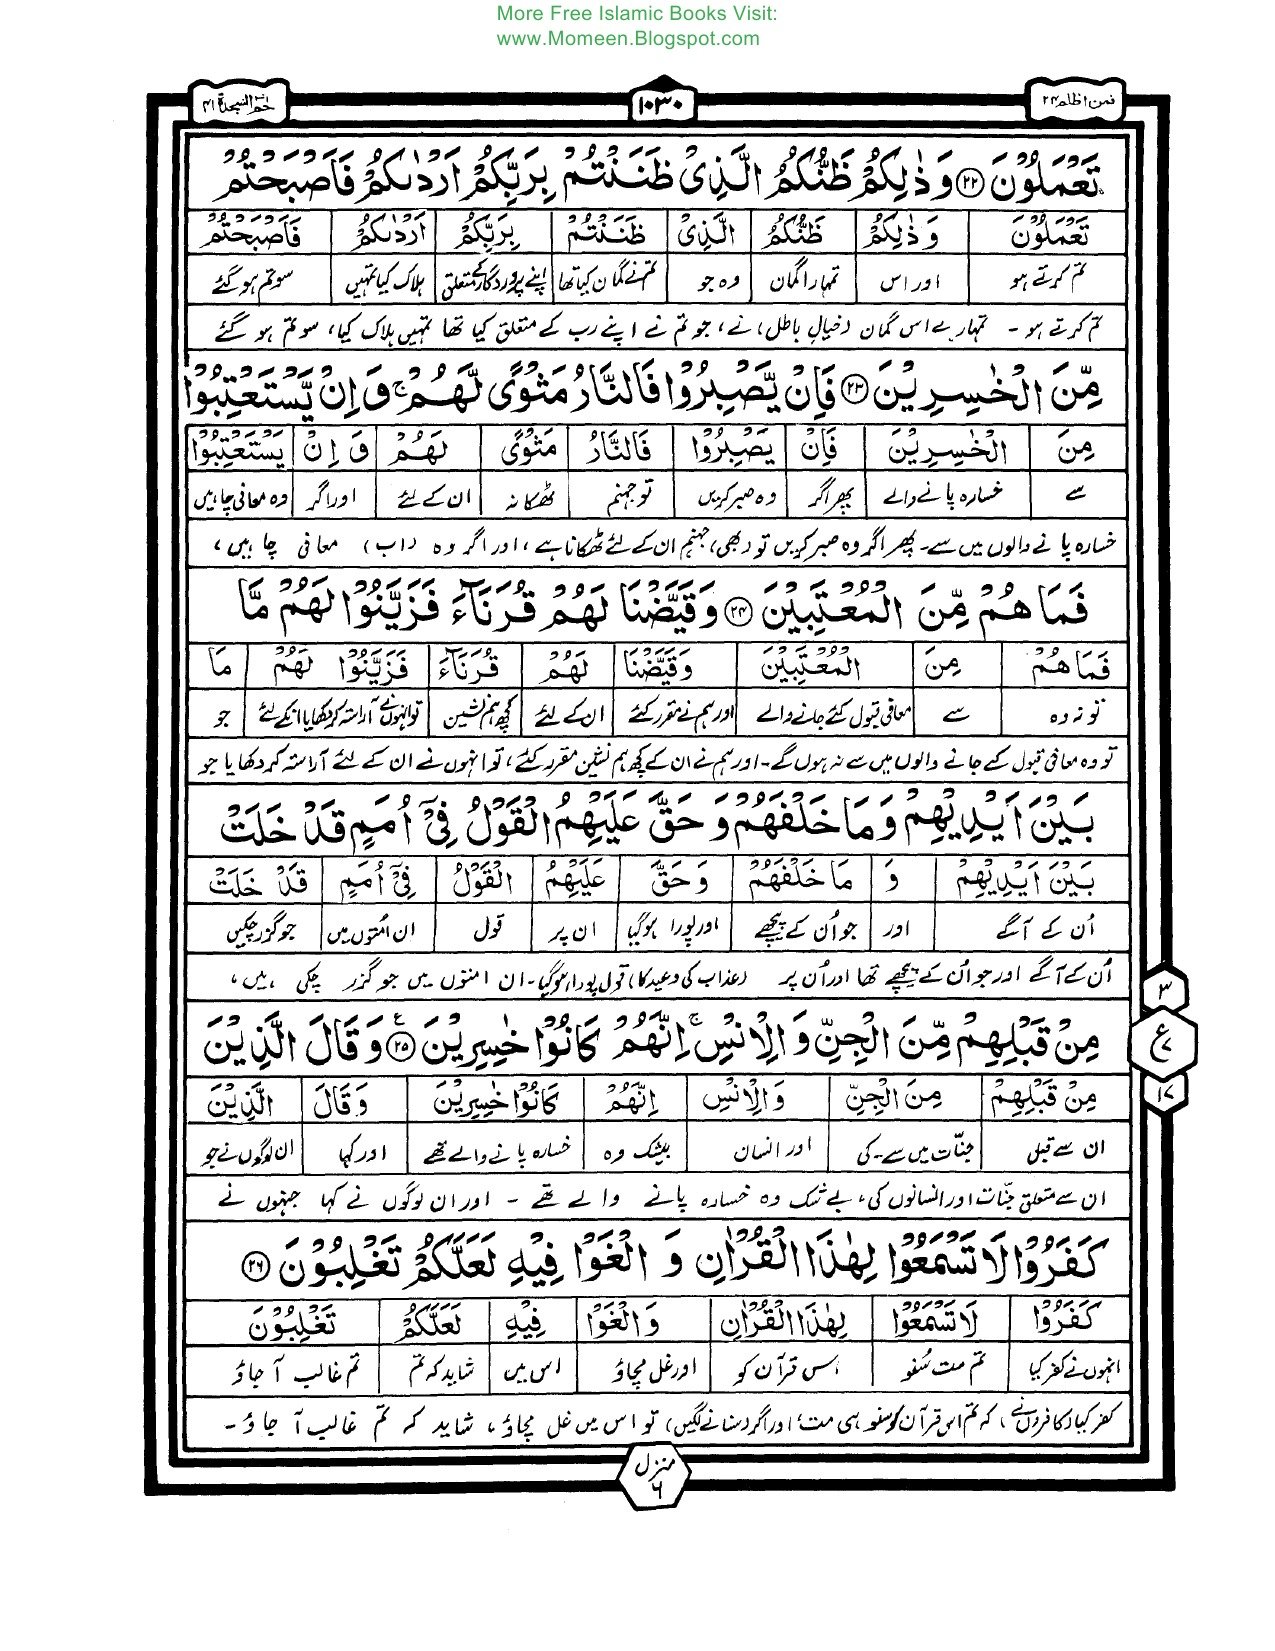 More Free Islamic Books Visit:
www.Momeen.Blogspot.com
فمن اظلم ۲۴
۱۰۳۰
حٰمٓ السجدة ۴۱
تَعْمَلُوْنَ ۝۲۲ وَذٰلِكُمْ ظَنُّكُمُ الَّذِیْ ظَنَنْتُمْ بِرَبِّكُمْ اَرْدٰىكُمْ فَاَصْبَحْتُمْ
تَعْمَلُوْنَ وَذٰلِكُمْ ظَنُّكُمُ الَّذِیْ ظَنَنْتُمْ بِرَبِّكُمْ اَرْدٰىكُمْ فَاَصْبَحْتُمْ
تم کرتے ہو اور اس تمہارا گمان وہ جو تم نے گمان کیا تھا اپنے پروردگار کے متعلق ہلاک کیا تمہیں سو تم ہو گئے
تم کرتے ہو - تمہارے اس گمان (خیالِ باطل) نے، جو تم نے اپنے رب کے متعلق کیا تھا تمہیں ہلاک کیا، سو تم ہو گئے
مِّنَ الْخٰسِرِیْنَ ۝۲۳ فَاِنْ یَّصْبِرُوْا فَالنَّارُ مَثْوًی لَّهُمْ ۚ وَاِنْ یَّسْتَعْتِبُوْا
مِنَ الْخٰسِرِیْنَ فَاِنْ یَصْبِرُوْا فَالنَّارُ مَثْوًی لَهُمْ وَ اِنْ یَسْتَعْتِبُوْا
سے خسارہ پانے والے پھر اگر وہ صبر کریں تو جہنم ٹھکانہ ان کے لئے اور اگر وہ معافی چاہیں
خسارہ پانے والوں میں سے۔ پھر اگر وہ صبر کریں تو (بھی) جہنم ان کے لئے ٹھکانا ہے، اور اگر وہ (اب) معافی چاہیں،
فَمَا هُمْ مِّنَ الْمُعْتَبِیْنَ ۝۲۴ وَقَیَّضْنَا لَهُمْ قُرَنَآءَ فَزَیَّنُوْا لَهُمْ مَّا
فَمَا هُمْ مِنَ الْمُعْتَبِیْنَ وَقَیَّضْنَا لَهُمْ قُرَنَآءَ فَزَیَّنُوْا لَهُمْ مَا
تو نہ وہ سے معافی قبول کئے جانے والے اور ہم نے مقرر کئے ان کے لئے کچھ ہم نشین تو انہوں نے آراستہ کر دکھایا انکے لئے جو
تو وہ معافی قبول کیے جانے والوں میں سے نہ ہوں گے۔ اور ہم نے ان کے کچھ ہم نشین مقرر کئے، تو انہوں نے ان کے لئے آراستہ کر دکھایا جو
بَیْنَ اَیْدِیْهِمْ وَمَا خَلْفَهُمْ وَحَقَّ عَلَیْهِمُ الْقَوْلُ فِیْۤ اُمَمٍ قَدْ خَلَتْ
بَیْنَ اَیْدِیْهِمْ وَ مَا خَلْفَهُمْ وَ حَقَّ عَلَیْهِمُ الْقَوْلُ فِیْۤ اُمَمٍ قَدْ خَلَتْ
اُن کے آگے اور جو اُن کے پیچھے اور پورا ہوگیا ان پر قول ان اُمتوں میں جو گزر چکیں
اُن کے آگے اور جو اُن کے پیچھے تھا اور اُن پر (عذاب کی وعید کا) قول پورا ہوگیا۔ ان امتوں میں جو گزر چکی ہیں،
مِنْ قَبْلِهِمْ مِّنَ الْجِنِّ وَالْاِنْسِ ۚ اِنَّهُمْ كَانُوْا خٰسِرِیْنَ ۝۲۵ وَقَالَ الَّذِیْنَ
مِنْ قَبْلِهِمْ مِنَ الْجِنِّ وَالْاِنْسِ اِنَّهُمْ كَانُوْا خٰسِرِیْنَ وَقَالَ الَّذِیْنَ
ان سے قبل جنّات میں سے-کی اور انسان بیشک وہ خسارہ پانے والے تھے اور کہا ان لوگوں نے جو
ان سے متعلق جنّات اور انسانوں کی، بے شک وہ خسارہ پانے والے تھے - اور ان لوگوں نے کہا جنہوں نے
كَفَرُوْا لَا تَسْمَعُوْا لِهٰذَا الْقُرْاٰنِ وَ الْغَوْا فِیْهِ لَعَلَّكُمْ تَغْلِبُوْنَ ۝۲۶
كَفَرُوْا لَا تَسْمَعُوْا لِهٰذَا الْقُرْاٰنِ وَ الْغَوْا فِیْهِ لَعَلَّكُمْ تَغْلِبُوْنَ
انہوں نے کفر کیا تم مت سُنو اس قرآن کو اور غل مچاؤ اس میں شاید کہ تم تم غالب آ جاؤ
کفر کیا (کافروں نے)، کہ تم اس قرآن کو سنو ہی مت، اور اگر (سنانے لگیں) تو اس میں غل مچاؤ، شاید کہ تم غالب آ جاؤ -
۳
ع
۷
۱۷
منزل
۶